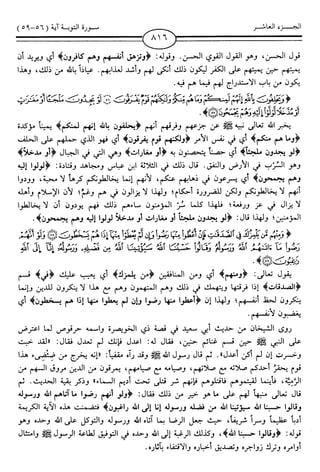 الجـــزء العاشـــر
سـورة التوبـة آيـة (٥٦-٥٩)
٨١٦
قول الحسن، وهو القول القوي الحسن. وقوله: ﴿وتزهق أنفسهم وهم كافرون﴾ أي ويريد أن
يميتهم حين يميتهم على الكفر ليكون ذلك أنكى لهم وأشد لعذابهم. عياذاً بالله من ذلك، وهذا
يكون من باب الاستدراج لهم فيما هم فيه.
﴿وَيَحْلِفُونَ بِاللَّهِ إِنَّهُمْ لَمِنكُمْ وَمَا هُم مِّنكُمْ وَلَٰكِنَّهُمْ قَوْمٌ يَفْرَقُونَ لَوْ يَجِدُونَ مَلْجَأً أَوْ مَغَارَاتٍ
أَوْ مُدَّخَلًا لَّوَلَّوْا إِلَيْهِ وَهُمْ يَجْمَحُونَ﴾
يخبر الله تعالى نبيه ﷺ عن جزعهم وفرقهم أنهم ﴿يحلفون بالله إنهم لمنكم﴾ يميناً مؤكدة
﴿وما هم منكم﴾ أي في نفس الأمر ﴿ولكنهم قوم يفرقون﴾ أي فهو الذي حملهم على الحلف
﴿لو يجدون ملجأ﴾ أي حصناً يتحصنون به ﴿أو مغارات﴾ وهي التي في الجبال ﴿أو مدخلا﴾
وهو السَّرَب في الأرض والنفق. قال ذلك في الثلاثة ابن عباس ومجاهد وقتادة: ﴿لولوا إليه
وهم يجمحون﴾ أي يسرعون في ذهابهم عنكم، لأنهم إنما يخالطونكم كرهاً لا محبة، وودوا
أنهم لا يخالطونكم ولكن للضرورة أحكام، ولهذا لا يزالون في هم وغم؛ لأن الإسلام وأهله
لا يزال في عز ورفعة؛ فلهذا كلما سُرّ المؤمنون ساءهم ذلك فهم يودون أن لا يخالطوا
المؤمنين؛ ولهذا قال: ﴿لو يجدون ملجئاً أو مغارات أو مدخلاً لولوا إليه وهم يجمحون﴾.
﴿وَمِنْهُم مَّن يَلْمِزُكَ فِي الصَّدَقَاتِ فَإِنْ أُعْطُوا مِنْهَا رَضُوا وَإِن لَّمْ يُعْطَوْا مِنْهَا إِذَا هُمْ يَسْخَطُونَ وَلَوْ أَنَّهُمْ
رَضُوا مَا آتَاهُمُ اللَّهُ وَرَسُولُهُ وَقَالُوا حَسْبُنَا اللَّهُ سَيُؤْتِينَا اللَّهُ مِن فَضْلِهِ وَرَسُولُهُ إِنَّا إِلَى اللَّهِ
رَاغِبُونَ﴾
يقول تعالى: ﴿ومنهم﴾ أي ومن المنافقين ﴿من يلمزك﴾ أي يعيب عليك ﴿في﴾ قسم
﴿الصدقات﴾ إذا فرقتها ويتهمك في ذلك وهم المتهمون وهم مع هذا لا ينكرون للدين وإنما
ينكرون لحظ أنفسهم؛ ولهذا إن ﴿أعطوا منها رضوا وإن لم يعطوا منها إذا هم يسخطون﴾ أي
يغضبون لأنفسهم.
روى الشيخان من حديث أبي سعيد في قصة ذي الخويصرة واسمه حرقوص لما اعترض
على النبي ﷺ حين قسم غنائم حنين، فقال له: اعدل فإنك لم تعدل فقال: "لقد خبت
وخسرت إن لم أكن أعدل". ثم قال رسول الله ﷺ وقد رآه مقفياً: "إنه يخرج من ضِئْضِىء هذا
قوم يحقر أحدكم صلاته مع صلاتهم، وصيامه مع صيامهم، يمرقون من الدين مروق السهم من
الرمية، فأينما لقيتموهم فاقتلوهم فإنهم شر قتلى تحت أديم السماء" وذكر بقية الحديث. ثم
قال تعالى منبهاً لهم على ما هو خير من ذلك فقال: ﴿ولو أنهم رضوا ما آتاهم الله ورسوله
وقالوا حسبنا الله سيؤتينا الله من فضله ورسوله إنا إلى الله راغبون﴾ فتضمنت هذه الآية الكريمة
أدباً عظيماً وسراً شريفاً، حيث جعل الرضا بما آتاه الله ورسوله والتوكل على الله وحده وهو
قوله: ﴿وقالوا حسبنا الله﴾، وكذلك الرغبة إلى الله وحده في التوفيق لطاعة الرسول ﷺ وامتثال
أوامره وترك زواجره وتصديق أخباره والاقتفاء بآثاره.